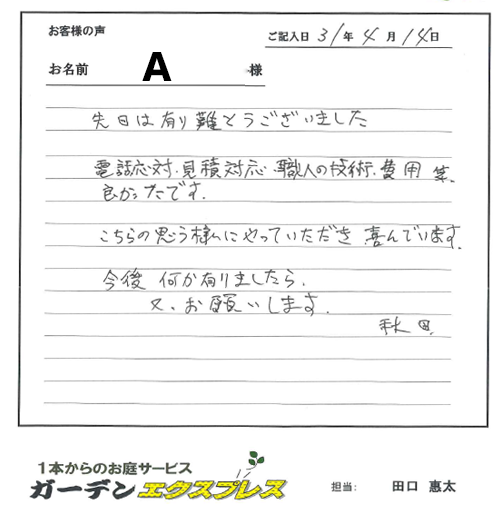 お客様の声
ご記入日 31年 4月 14日
お名前 A 様
先日は有り難とうございました
電話応対.見積対応.職人の技術.費用 等.
良かったです.
こちらの思う様にやっていただき 喜んでいます.
今後 何か有りましたら.
又、お願いします.
秋田.
1本からのお庭サービス
ガーデンエクスプレス 担当: 田口 惠太